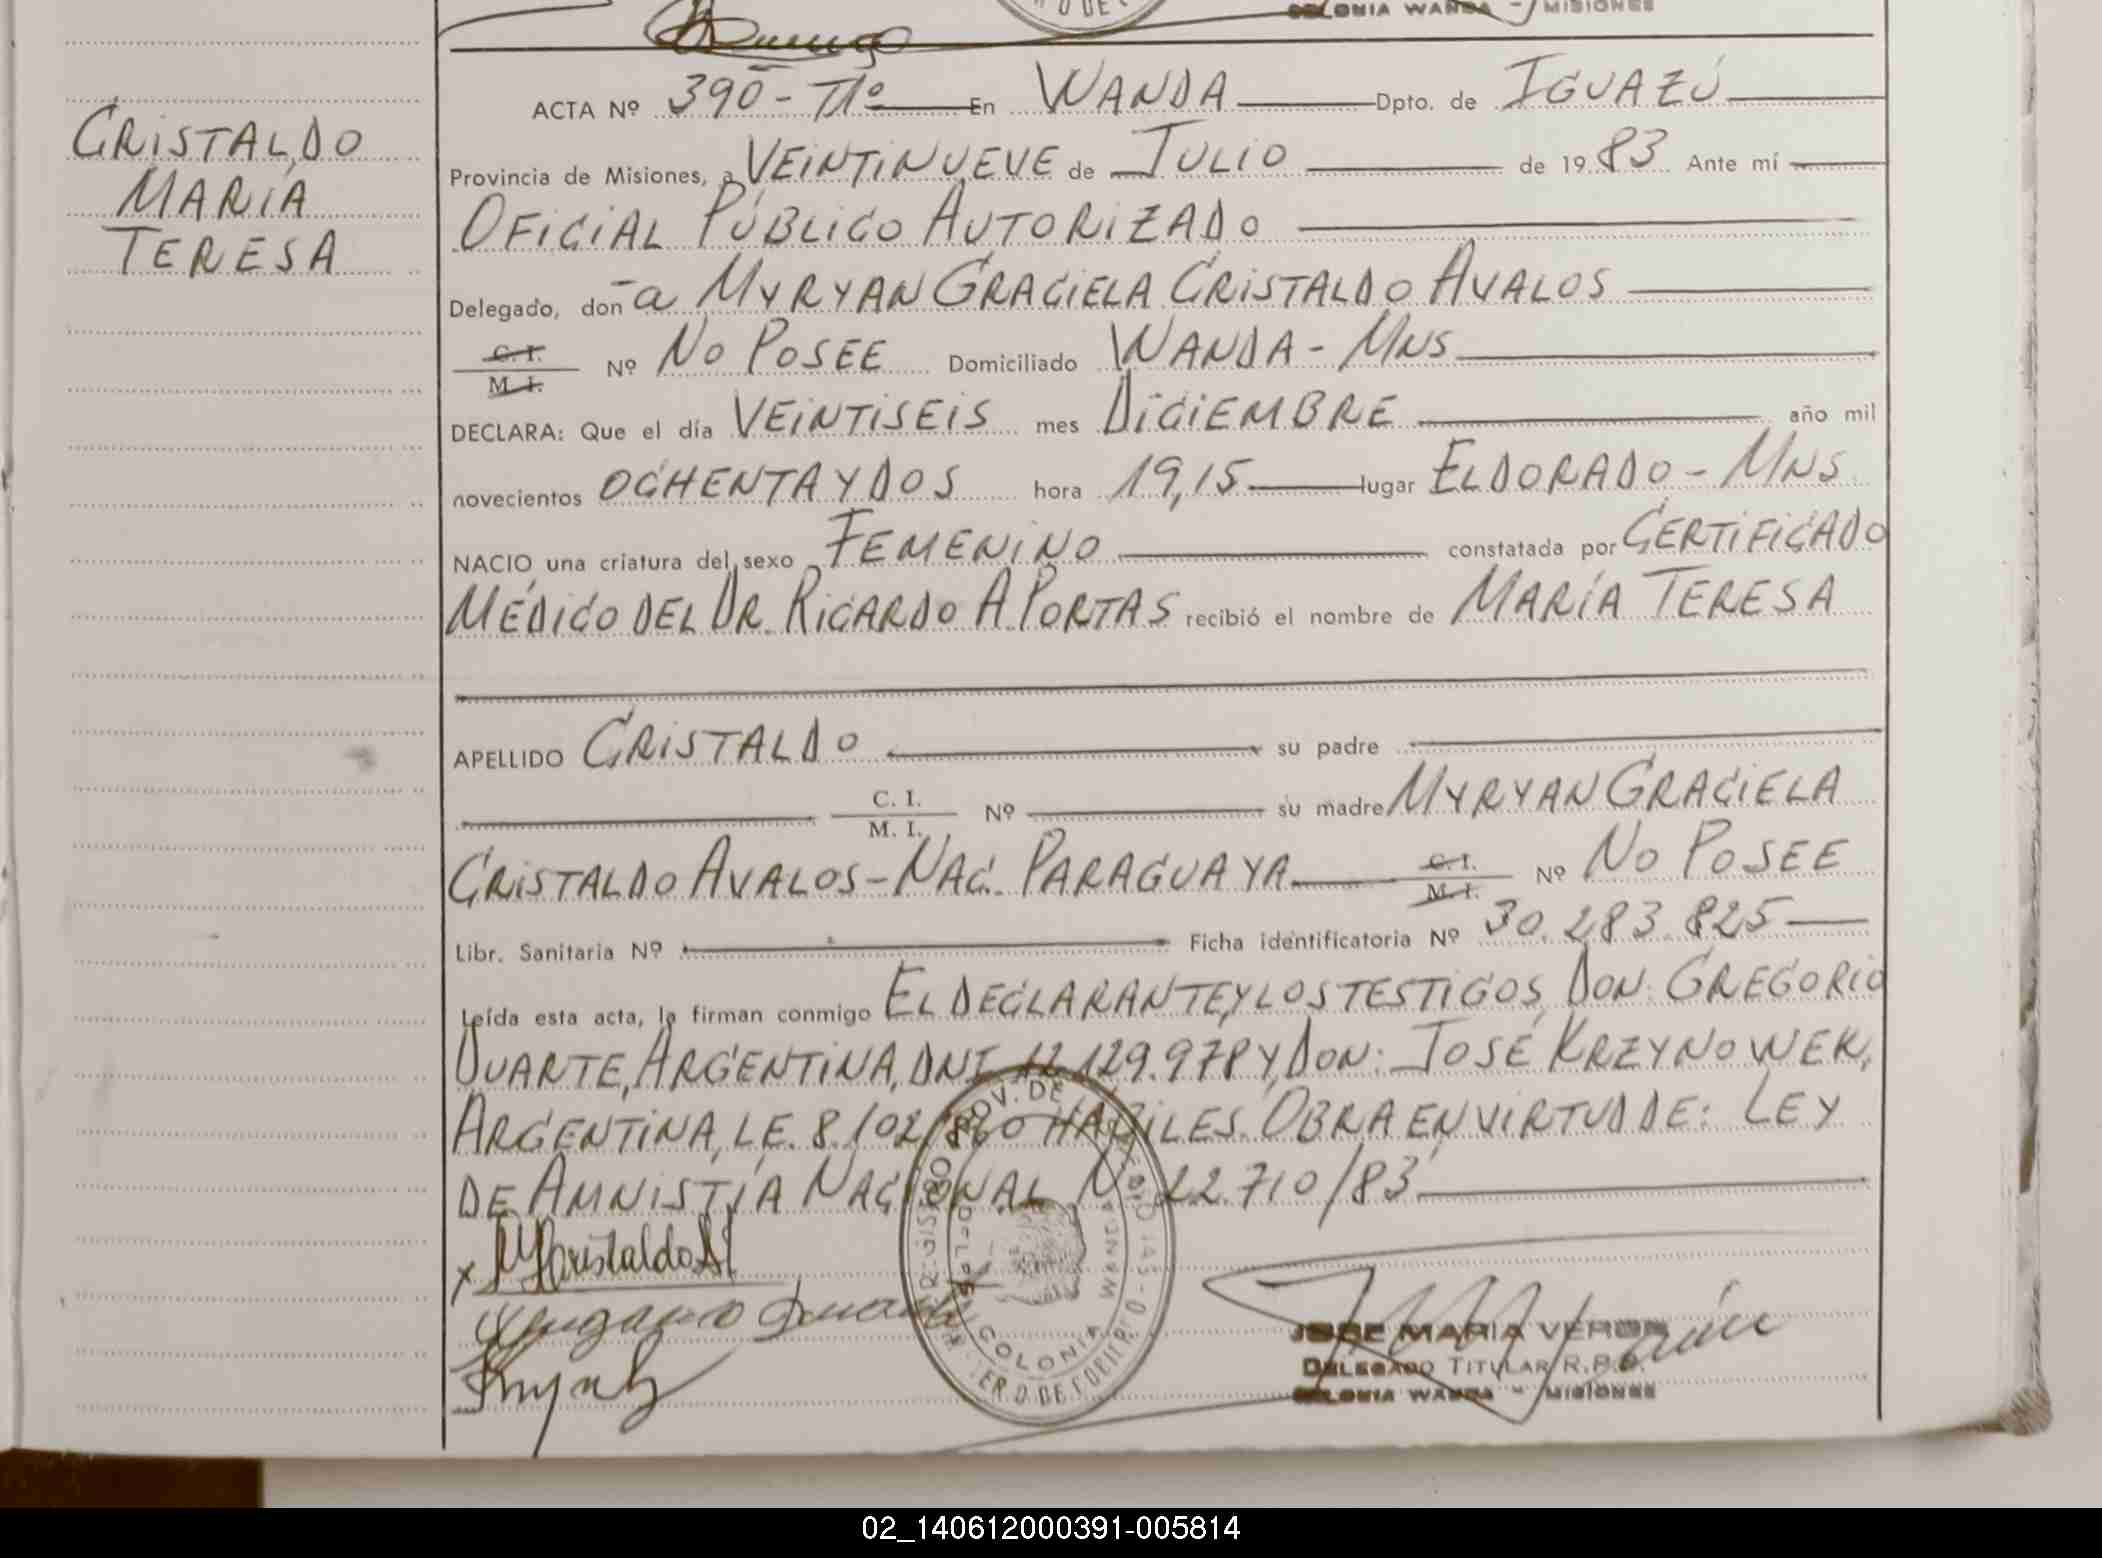 COLONIA WANDA - MISIONES
CRISTALDO
MARÍA
TERESA
ACTA Nº 390 - Tlº En WANDA Dpto. de IGUAZÚ
Provincia de Misiones, a VEINTINUEVE de JULIO de 1983 Ante mí
OFICIAL PÚBLICO AUTORIZADO
Delegado, don-a MYRYAN GRACIELA CRISTALDO AVALOS
C. I. / M. I. Nº NO POSEE Domiciliado WANDA - MNS
DECLARA: Que el día VEINTISEIS mes DICIEMBRE año mil
novecientos OCHENTA Y DOS hora 19,15 lugar ELDORADO - MNS
NACIO una criatura del sexo FEMENINO constatada por CERTIFICADO
MÉDICO DEL DR. RICARDO A. PORTAS recibió el nombre de MARÍA TERESA
APELLIDO CRISTALDO su padre
C. I. / M. I. Nº su madre MYRYAN GRACIELA
CRISTALDO AVALOS - NAC. PARAGUAYA C. I. / M. I. Nº NO POSEE
Libr. Sanitaria Nº Ficha identificatoria Nº 30.283.825
Leída esta acta, la firman conmigo EL DECLARANTE, Y LOS TESTIGOS, DON: GREGORIO
DUARTE, ARGENTINA, DNI 12.129.978 Y DON: JOSÉ KRZYNOWEK,
ARGENTINA, L.E. 8.102.860 HÁBILES. OBRA EN VIRTUD DE: LEY
DE AMNISTÍA NACIONAL Nº 22.710/83
x MGCristaldo A
Duarte
COLONIA
WANDA
JOSE MARIA VERON
DELEGADO TITULAR R.P.C.
COLONIA WANDA - MISIONES
02_140612000391-005814